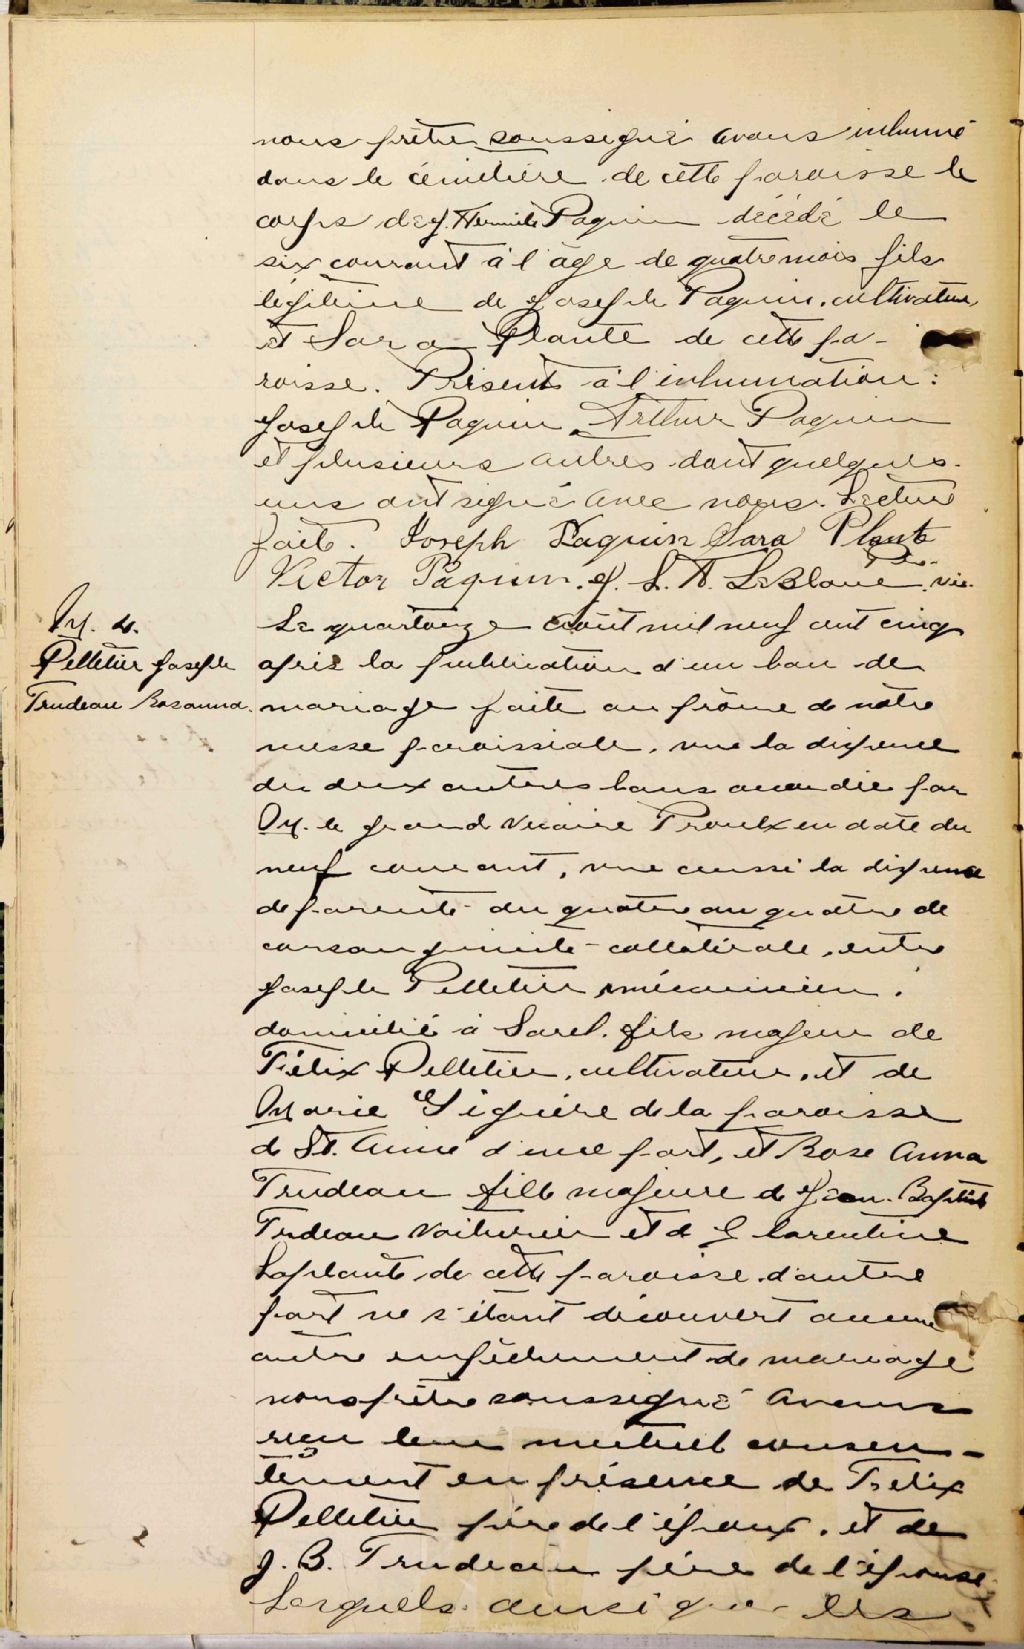 nous prêtre soussigné avons inhumé
dans le cimetière de cette paroisse le
corps de J. Hermile Paquin décédé le
six courant à l'âge de quatre mois fils
légitime de Joseph Paquin, cultivateur
et Sara Plante de cette pa-
roisse. Présents à l'inhumation:
Joseph Paquin, Arthur Paquin
et plusieurs autres dont quelques-
uns ont signé avec nous. Lecture
faite. Joseph Paquin Sara Plante
Victor Paquin. L. A. LeBlanc Ptre. vic.
M. 4.
Pelletier Joseph
Trudeau Rosanna.
Le quatorze août mil neuf cent cinq
après la publication d'un ban de
mariage faite au prône de notre
messe paroissiale, vue la dispense
de deux autres bans accordée par
M. le grand vicaire Proulx en date du
neuf courant, vue aussi la dispense
de parenté du quatre au quatre de
consanguinité collatérale, entre
Joseph Pelletier, mécanicien,
domicilié à Sorel, fils majeur de
Félix Pelletier, cultivateur, et de
Marie Giguère de la paroisse
de St. Aimé d'une part, et Rose Anna
Trudeau fille majeure de Jean-Baptiste
Trudeau voiturier et de Florentine
Laplante de cette paroisse d'autre
part ne s'étant découvert aucun
autre empêchement de mariage
nous prêtre soussigné avons
reçu leur mutuel consen-
tement en présence de Félix
Pelletier père de l'époux, et de
J. B. Trudeau père de l'épouse
Lesquels ainsi que les